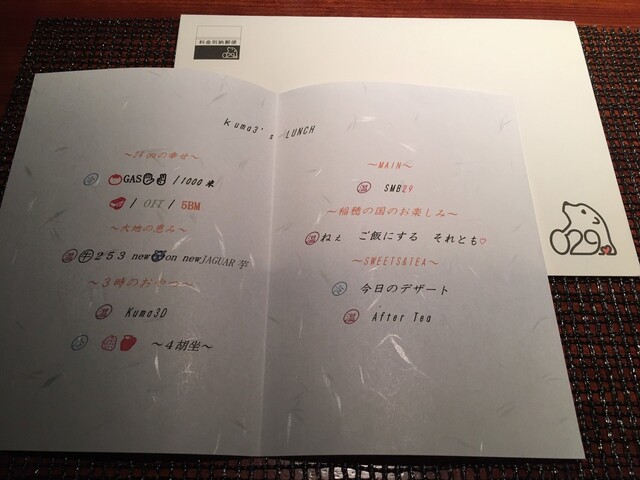 料金別納郵便
029
Kuma3's LUNCH
の幸せ〜
冷 GAS /1000米
/ OIT / 5BM
〜大地の恵み〜
温 牛 253 new on newJAGUAR芋
〜3時のおやつ〜
温 Kuma3D
冷 〜4胡坐〜
〜MAIN〜
温 SMB29
〜稲穂の国のお楽しみ〜
温 ねぇ ご飯にする それとも♡
〜SWEETS&TEA〜
冷 今日のデザート
温 After Tea
029